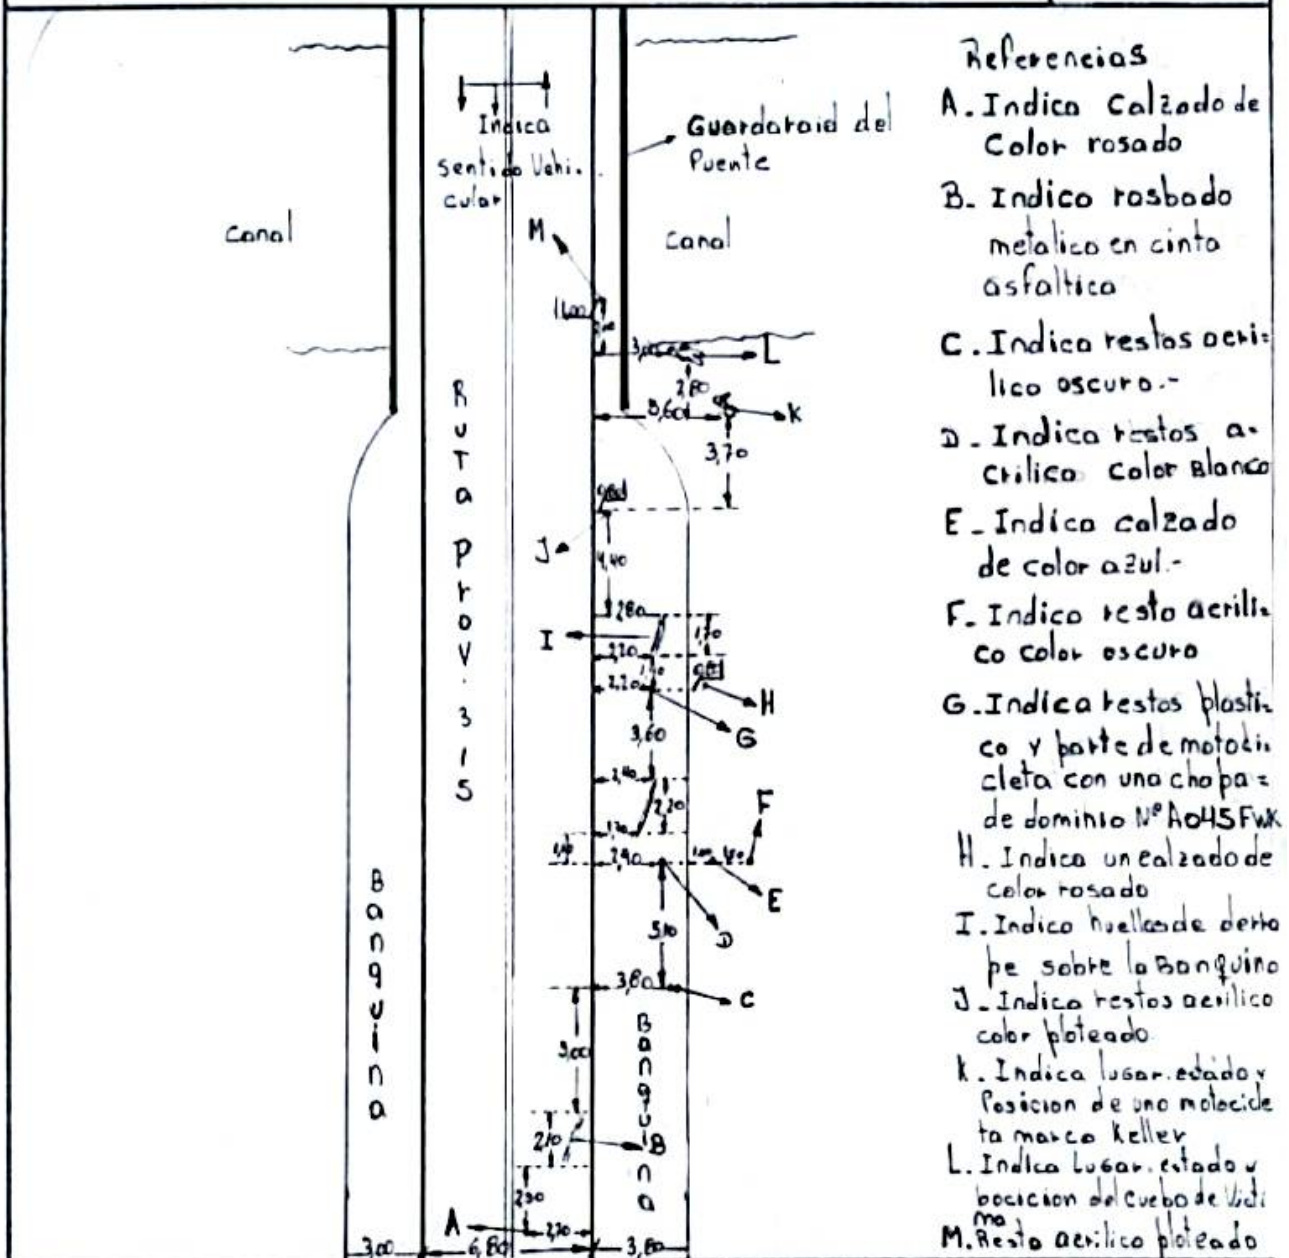 Indica
sentido Vehi.
cular
Guardaraid del
Puente
Canal
Canal
M
1,00
3,00
L
2,80
3,60
K
3,70
J
4,40
2,80
I
1,70
2,20
2,20
H
G
3,60
2,40
2,20
F
1,70
2,90
1,00
E
D
5,10
3,80
C
3,00
2,10
B
2,30
A
2,20
3,00
6,80
3,80
Ruta Prov. 315
Banquina
Banquina
Referencias
A. Indica Calzado de
Color rosado
B. Indico rasbado
metalico en cinta
asfaltica
C. Indica restos acri=
lico oscuro.-
D - Indica restos a-
Crilico Color Blanco
E - Indica calzado
de color azul.-
F. Indico resto acrili=
co color oscuro
G. Indica restos plasti=
co y parte de motoci=
cleta con una chapa=
de dominio Nº A045FWK
H. Indica un calzado de
color rosado
I. Indico huellas de derra
pe sobre la Banquina
J - Indica restos acrilico
color plateado
K. Indica lugar, estado y
Posicion de una motocicle
ta marca Keller
L. Indica Lugar, estado y
pocicion del cuerpo de Victi
ma
M. Resto acrilico plateado